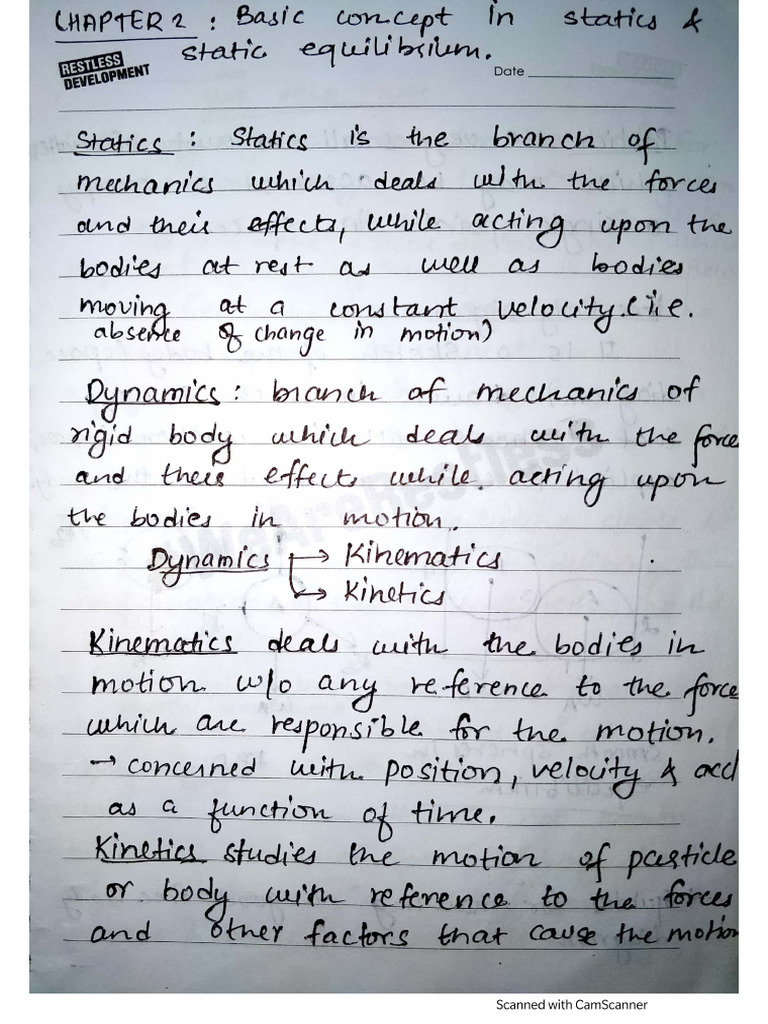 CHAPTER 2 : Basic concept in statics &
static equilibrium.
RESTLESS
DEVELOPMENT
Date
Statics : Statics is the branch of
mechanics which deals with the forces
and their effects, while acting upon the
bodies at rest as well as bodies
moving at a constant velocity. (i.e.
absence of change in motion)
Dynamics : branch of mechanics of
rigid body which deals with the force
and their effects while acting upon
the bodies in motion.
Dynamics → Kinematics
→ Kinetics
Kinematics deals with the bodies in
motion w/o any reference to the force
which are responsible for the motion.
→ concerned with position, velocity & accl
as a function of time.
Kinetics studies the motion of particle
or body with reference to the forces
and other factors that cause the motion
Scanned with CamScanner